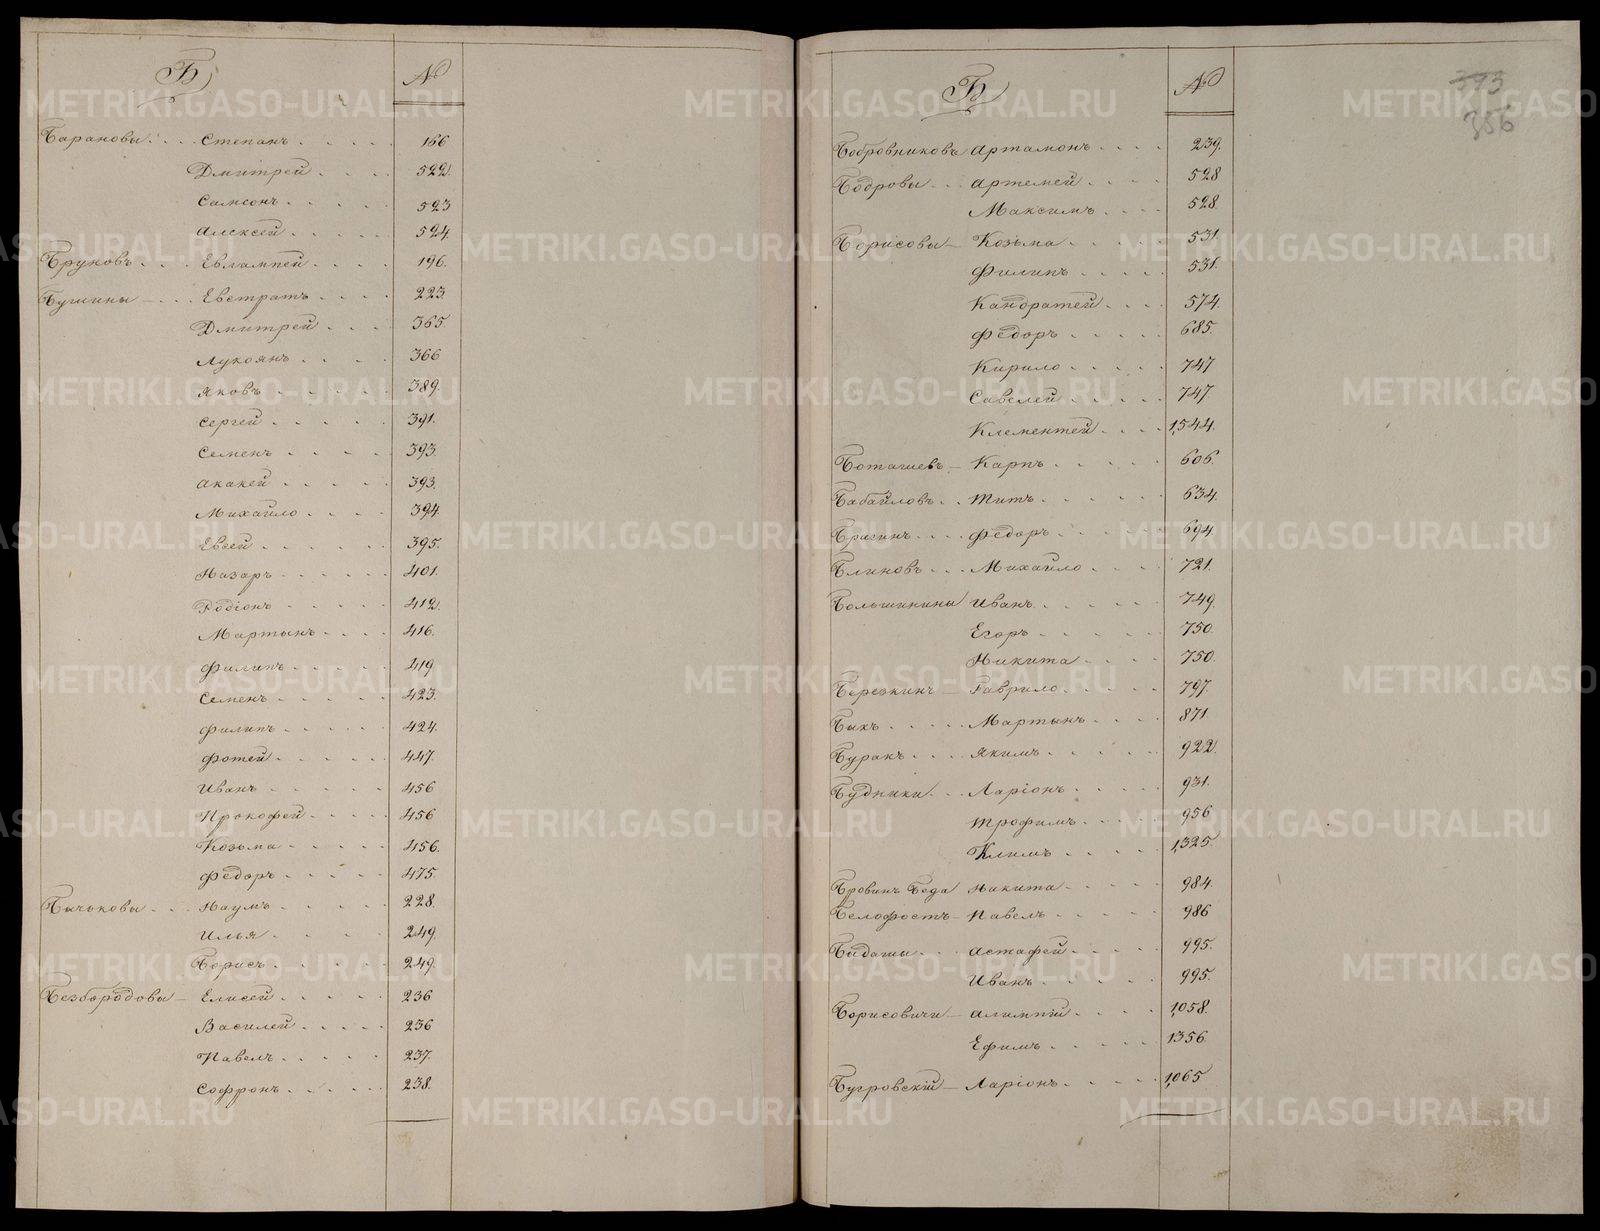 Б №
Барановы Степанъ 166
Дмитрей 522.
Самсонъ 523
Алексей 524.
Бруковъ Евлампей 196.
Бушины Евстратъ 223.
Дмитрей 365.
Лукоянъ 366
Яковъ 389.
Сергей 391.
Семенъ 393.
Акакей 393.
Михайло 394.
Евсей 395.
Назаръ 401.
Родіонъ 412.
Мартынъ 416.
Филипъ 419
Семенъ 423.
Филипъ 424.
Фотей 447.
Иванъ 456
Прокофей 456
Козьма 456.
Федоръ 475.
Бычьковы Наумъ 228.
Илья 249.
Борисъ 249.
Безбородовы Елисей 236
Василей 236
Павелъ 237.
Софронъ 238.
393
356
Б №
Бобровниковъ Артамонъ 239.
Бобровы Артемей 528
Максимъ 528.
Борисовы Козьма 531.
Филипъ 531.
Кандратей 574.
Федоръ 685.
Кирило 747
Савелей 747.
Клементей 1,544.
Боташевъ Карпъ 606.
Бабайловъ Титъ 634.
Брагинъ Федоръ 694.
Блиновъ Михайло 721.
Большинины Иванъ 749.
Егоръ 750.
Никита 750.
Березкинъ Гаврило 797.
Быкъ Мартынъ 871.
Буракъ Якимъ 922.
Будники Ларіонъ 931.
Трофимъ 956
Климъ 1,325.
Бровинъ Беда Никита 984.
Белофостъ Павелъ 986
Бидаши Астафей 995.
Иванъ 995.
Борисовичи Алимпій 1,058.
Ефимъ 1356.
Бугровскій Ларіонъ 1,065
METRIKI.GASO-URAL.RU